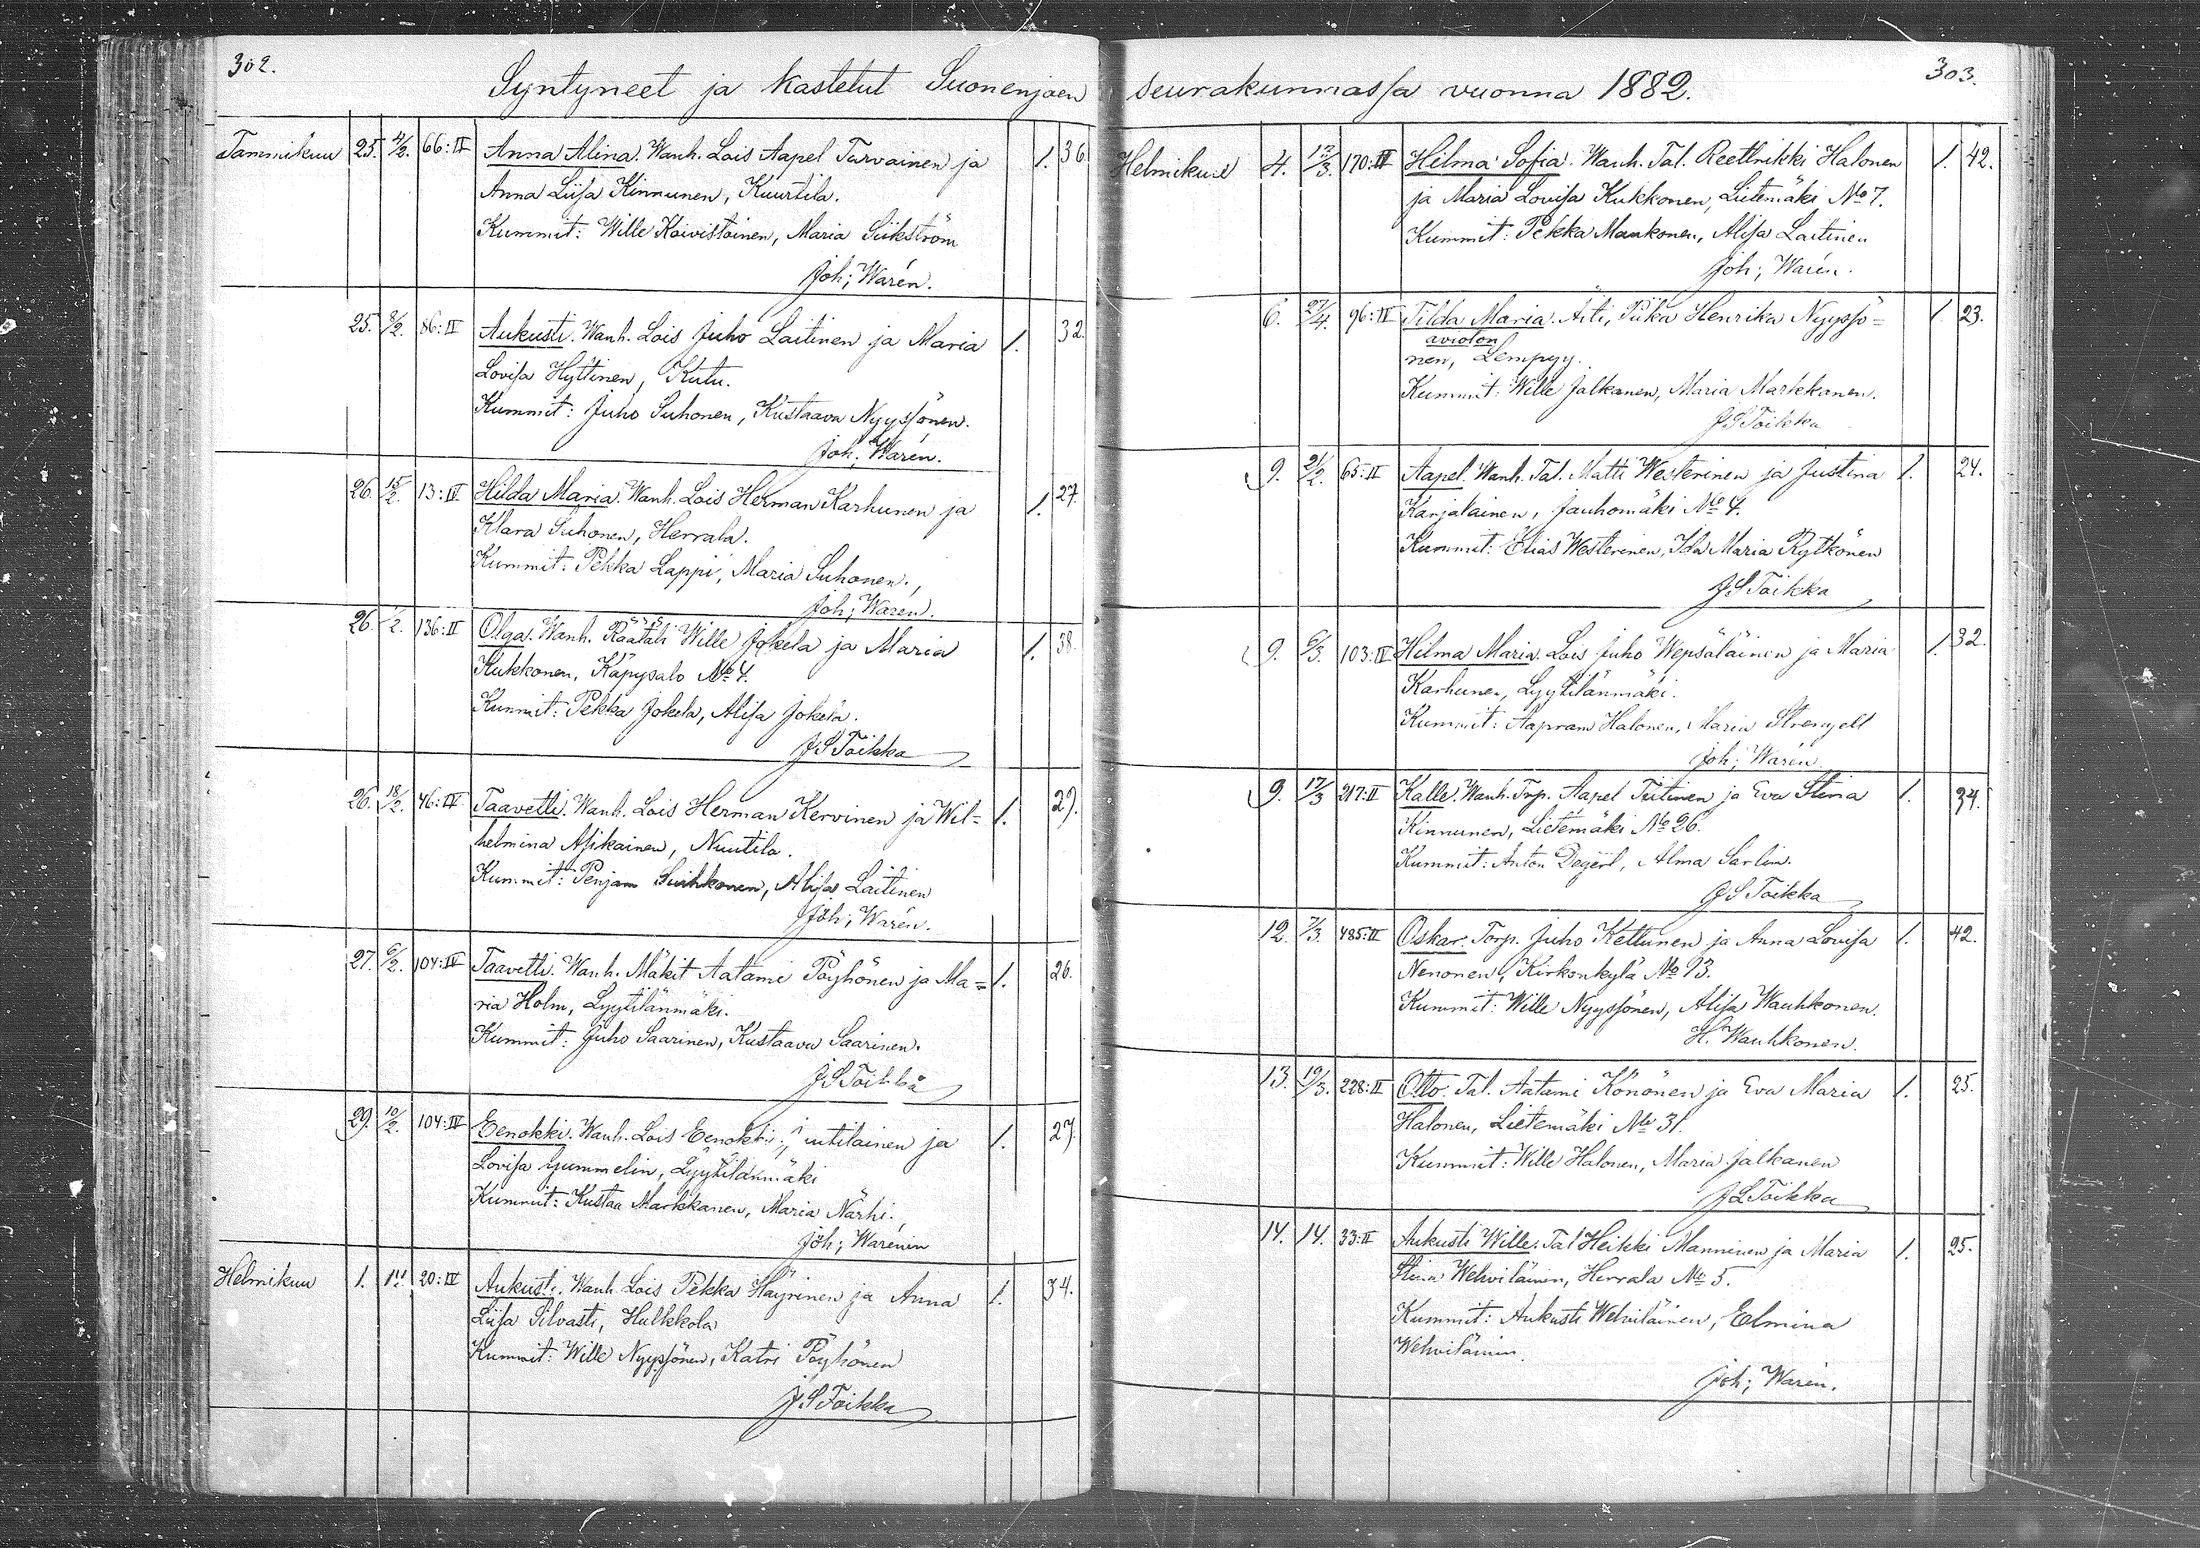 302.
Syntyneet ja kastetut Suonenjoen
Tammikuu 25. 4/2. 66:II Anna Alina. Wanh. Lois Aapel Tarvainen ja 1. 36.
Anna Liisa Kinnunen, Kuurtila.
Kummit: Wille Koivistoinen, Maria Siikström
Joh; Warén.
25. 8/2. 86:IV Aukusti. Wanh. Lois Juho Laitinen ja Maria 1. 32.
Lovisa Hyttinen, Kutu.
Kummit: Juho Suhonen, Kustaava Nyyssönen.
Joh; Warén.
26. 15/2. 13:IV Hilda Maria. Wanh. Lois Herman Karhunen ja 1. 27.
Klara Suhonen, Herrala.
Kummit: Pekka Lappi, Maria Suhonen.
Joh; Warén.
26. 1/2. 136:II Olga. Wanh. Räätäli Wille Jokela ja Maria 1. 38.
Kukkonen, Käpysalo No 4.
Kummit: Pekka Jokela, Alisa Jokela.
J S Toikka
26. 18/2. 46:IV Taavetti. Wanh. Lois Herman Kervinen ja Wil= 1. 29.
helmina Asikainen, Nuutila.
Kummit: Penjam Suihkonen, Alisa Laitinen
Joh; Warén.
27. 6/2. 104:IV Taavetti. Wanh. Mäkit Aatami Pöyhönen ja Ma= 1. 26.
ria Holm, Lyytilänmäki.
Kummit: Juho Saarinen, Kustaava Saarinen.
J S Toikka
29. 10/2. 104:IV Eenokki. Wanh. Lois Eenokki ja 1. 27.
Lovisa Gummelin, Lyytilänmäki
Kummit: Kustaa Markkanen, Maria Närhi.
Joh; Warénin
Helmikuu 1. 20:IV Aukusti. Wanh. Lois Pekka Häyrinen ja Anna 1. 34.
Liisa Silvasti, Hulkkola
Kummit: Wille Nyyssönen, Katri Pöyhönen
J S Toikka
303.
seurakunnassa vuonna 1882.
Helmikuu 4. 12/3. 170:IV Hilma Sofia. Wanh. Tal. Reetlrikki Halonen 1. 42.
ja Maria Lovisa Kukkonen, Lietemäki No 7.
Kummit: Pekka Mankonen, Alisa Laitinen
Joh; Warén.
6. 27/4. 96:IV Tilda Maria. Äiti, Piika Henrika Nyyssö= 1. 23.
avioton
nen, Lempyy.
Kummit: Wille Jalkanen, Maria Markkanen.
J S Toikka
9. 21/2. 65:II Aapel. Wanh. Tal. Matti Westerinen ja Justina 1. 24.
Karjalainen, Jauhomäki No 4.
Kummit: Elias Westerinen, Ida Maria Rytkönen
J S Toikka
9. 6/3. 103:IV Hilma Maria. Lois Juho Wepsäläinen ja Maria 1. 32.
Karhunen, Lyytilänmäki.
Kummit: Aapram Halonen, Maria Strengell
Joh; Warén.
9. 17/3 217:II Kalle. Wanh. Trp. Aapel Tiitinen ja Eva Stina 1. 34.
Kinnunen, Lietemäki No 26.
Kummit: Anton Degerl, Alma Sarlin.
J S Toikka
12. 7/3. 485:II Oskar. Torp. Juho Kettunen ja Anna Lovisa 1. 42.
Nenonen, Kirkonkylä No 13.
Kummit: Wille Nyyssönen, Alisa Wauhkonen.
H. Wauhkonen.
13. 19/3. 228:II Otto. Tal. Aatami Könönen ja Eva Maria 1. 25.
Halonen, Lietemäki No 31.
Kummit: Wille Halonen, Maria Jalkanen
J S Toikka
14. 14. 33:II Aukusti Wille. Tal Heikki Manninen ja Maria 1. 25.
Stina Wehviläinen, Herrala No 5.
Kummit: Aukusti Wehviläinen, Elmina
Wehviläinen.
Joh; Warén.